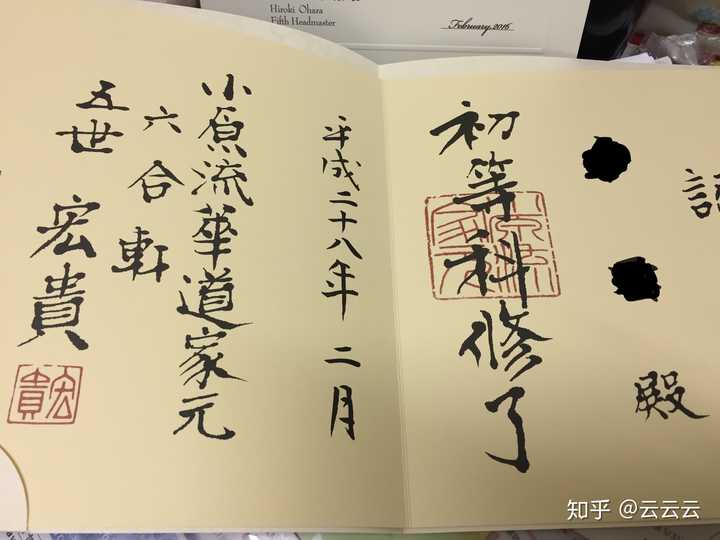 Hiroki Ohara
Fifth Headmaster
February, 2016
殿
初等科修了
平成二十八年 二月
小原流華道家元
六合軒
五世 宏貴
宏貴
知乎 @云云云